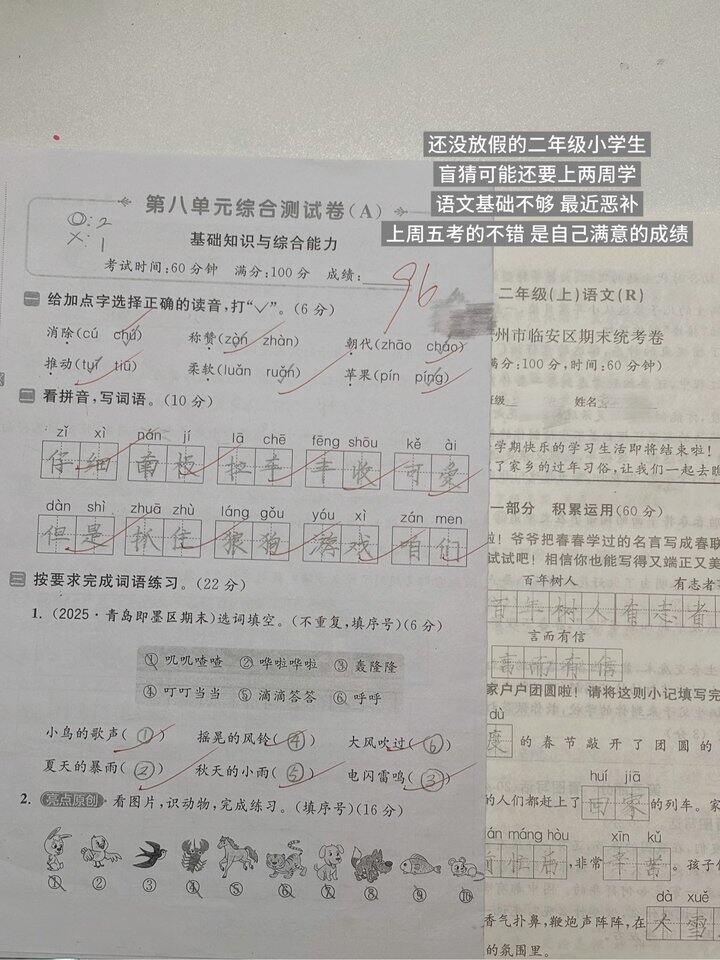 还没放假的二年级小学生
盲猜可能还要上两周学
语文基础不够 最近恶补
上周五考的不错 是自己满意的成绩
第八单元综合测试卷(A)
O:2
X:1
基础知识与综合能力
考试时间:60分钟 满分:100分 成绩:
96
一 给加点字选择正确的读音,打“√”。(6分)
消除(cú chú) 称赞(zàn zhàn) 朝代(zhāo cháo)
推动(tuī tiū) 柔软(luǎn ruǎn) 苹果(pín píng)
二 看拼音,写词语。(10分)
zǐ xì nán jí lā chē fēng shōu kě ài
仔细 南极 拉车 丰收 可爱
dàn shì zhuā zhù láng gǒu yóu xì zán men
但是 抓住 狼狗 游戏 咱们
三 按要求完成词语练习。(22分)
1. (2025·青岛即墨区期末)选词填空。(不重复,填序号)(6分)
① 叽叽喳喳 ② 哗啦哗啦 ③ 轰隆隆
④ 叮叮当当 ⑤ 滴滴答答 ⑥ 呼呼
小鸟的歌声(①) 摇晃的风铃(④) 大风吹过(⑥)
夏天的暴雨(②) 秋天的小雨(⑤) 电闪雷鸣(③)
2. 亮点原创 看图片,识动物,完成练习。(填序号)(16分)
① ② ③ ④ ⑤ ⑥ ⑦ ⑧ ⑨ ⑩
二年级(上)语文(R)
州市临安区期末统考卷
满分:100分,时间:60分钟)
班级 姓名
学期快乐的学习生活即将结束啦!
了家乡的过年习俗,让我们一起去
一部分 积累运用(60分)
啦!爷爷把春春学过的名言写成春联
试试吧!相信你也能写得又端正又美
百年树人 有志者
百年树人有志者
言而有信
言而有信
家户户团圆啦!请将这则小记填写完
dù
度的春节敲开了团圆的
huí jiā
的人们都赶上了回家的列车。家
án máng hòu xīn kǔ
前忙后,非常辛苦。孩子
dà xuě
香气扑鼻,鞭炮声阵阵,在大雪
的氛围里。